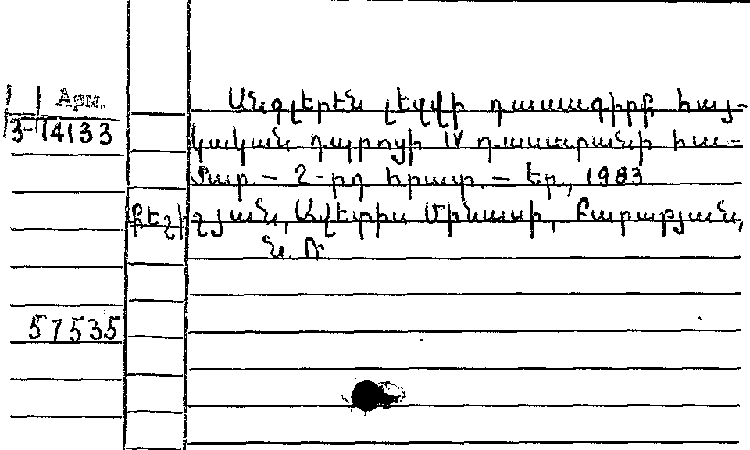 Арм.
3-14133
Անգլերեն լեզվի դասագիրք հայ-
կական դպրոցի IV դասարանի հա-
մար. – 2-րդ հրատ. – Եր., 1983
Քեշիշյան, Ավետիս Մինասի, Բարաթյան,
Ն. Ռ.
57535